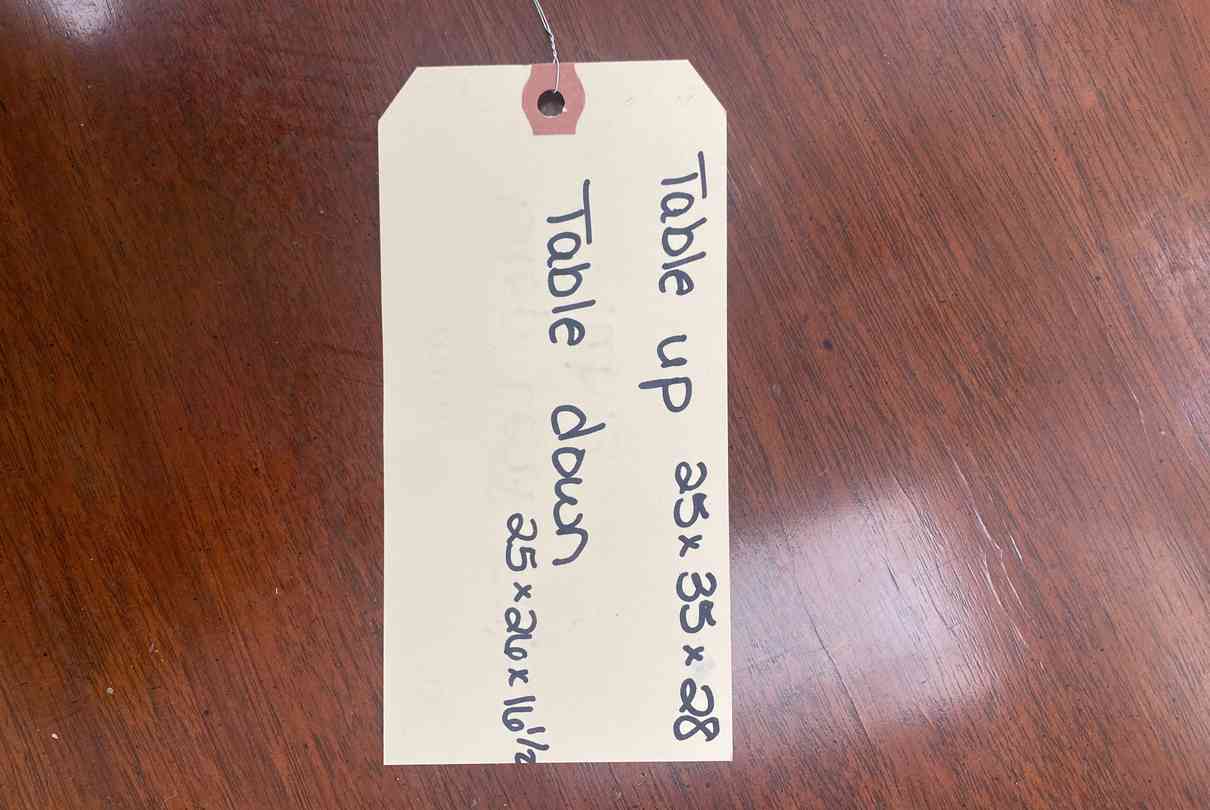 Table up 25 x 35 x 28
Table down
25 x 26 x 16 1/2